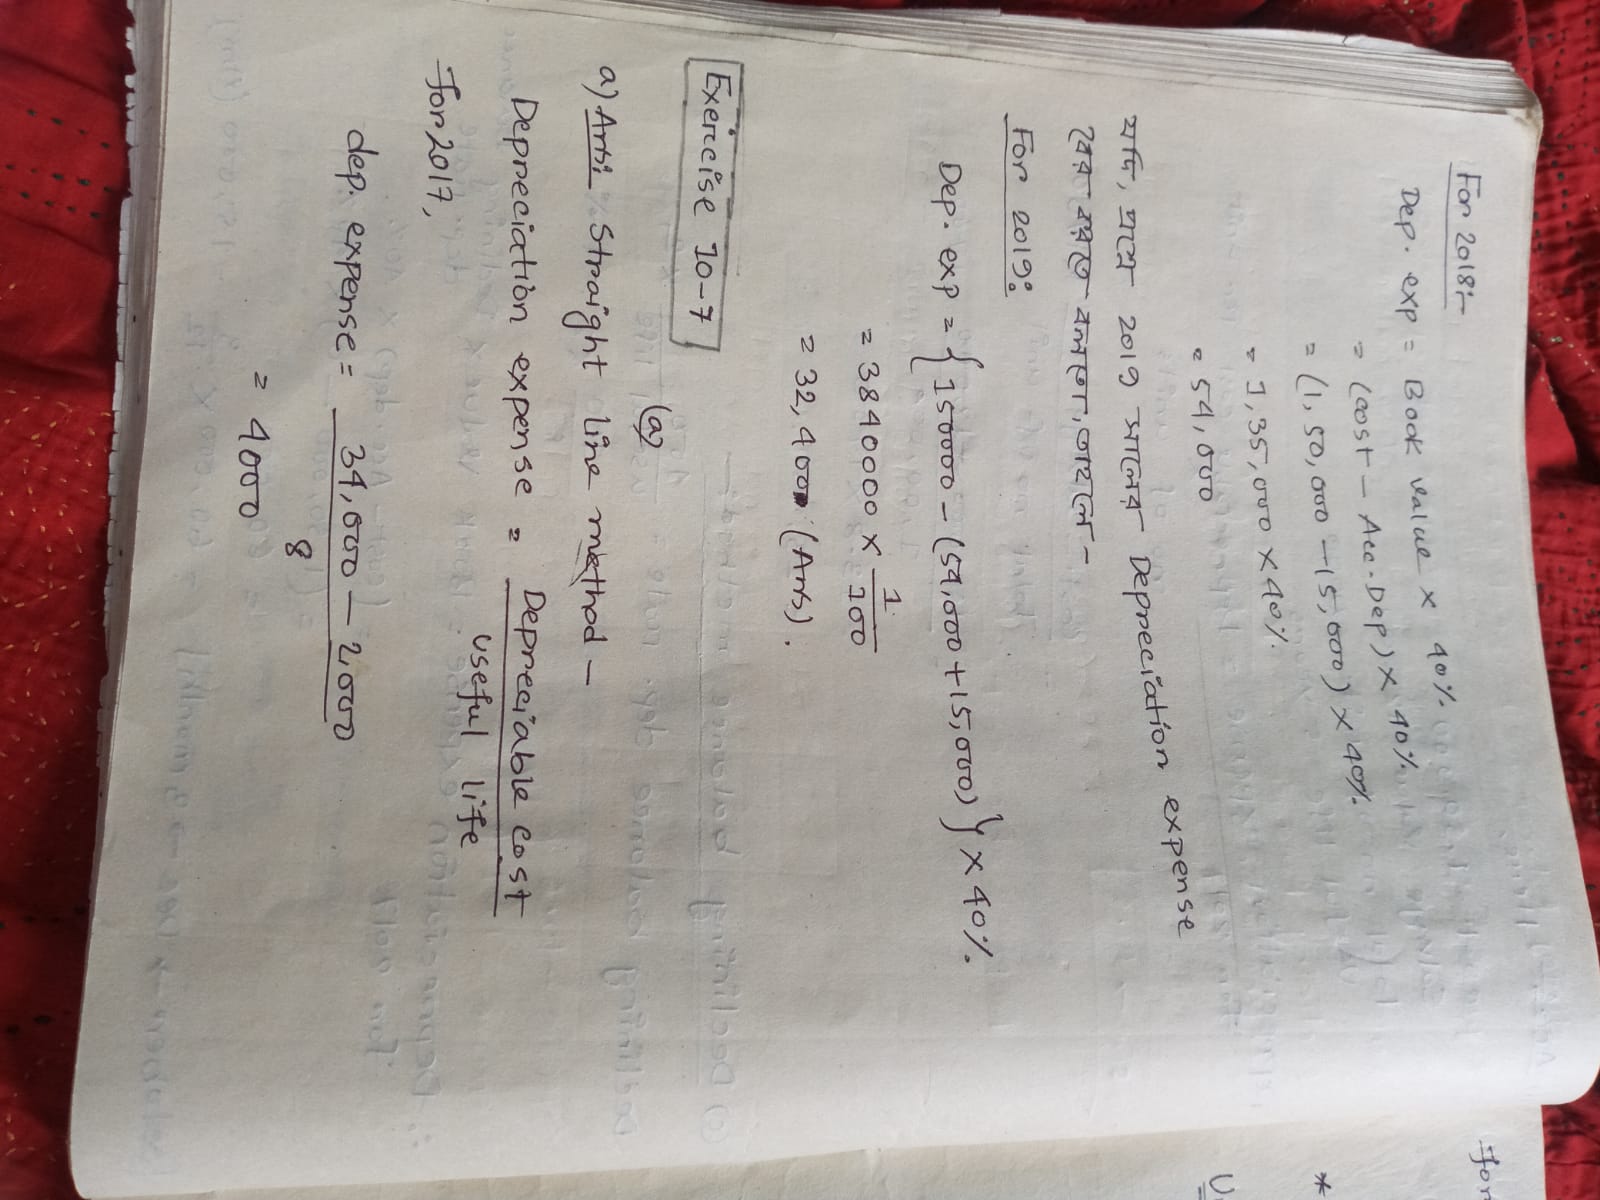 For 2018:-
Dep. exp = Book value × 40%
= (cost - Acc. Dep) × 40%
= (1,50,000 - 15,000) × 40%
= 1,35,000 × 40%
= 54,000
যদি, প্রশ্নে 2019 সালের Depreciation expense
বের করতে বলতো, তাহলে-
For 2019:
Dep. exp = {150000 - (54,000 + 15,000)} × 40%
= 3840000 × 1/100
= 32,400 (Ans).
Exercise 10-7
(a)
a) Ans: Straight line method -
Depreciation expense = Depreciable cost
Useful life
for 2017,
dep. expense = 34,000 - 2,000
8
= 4000
for
*